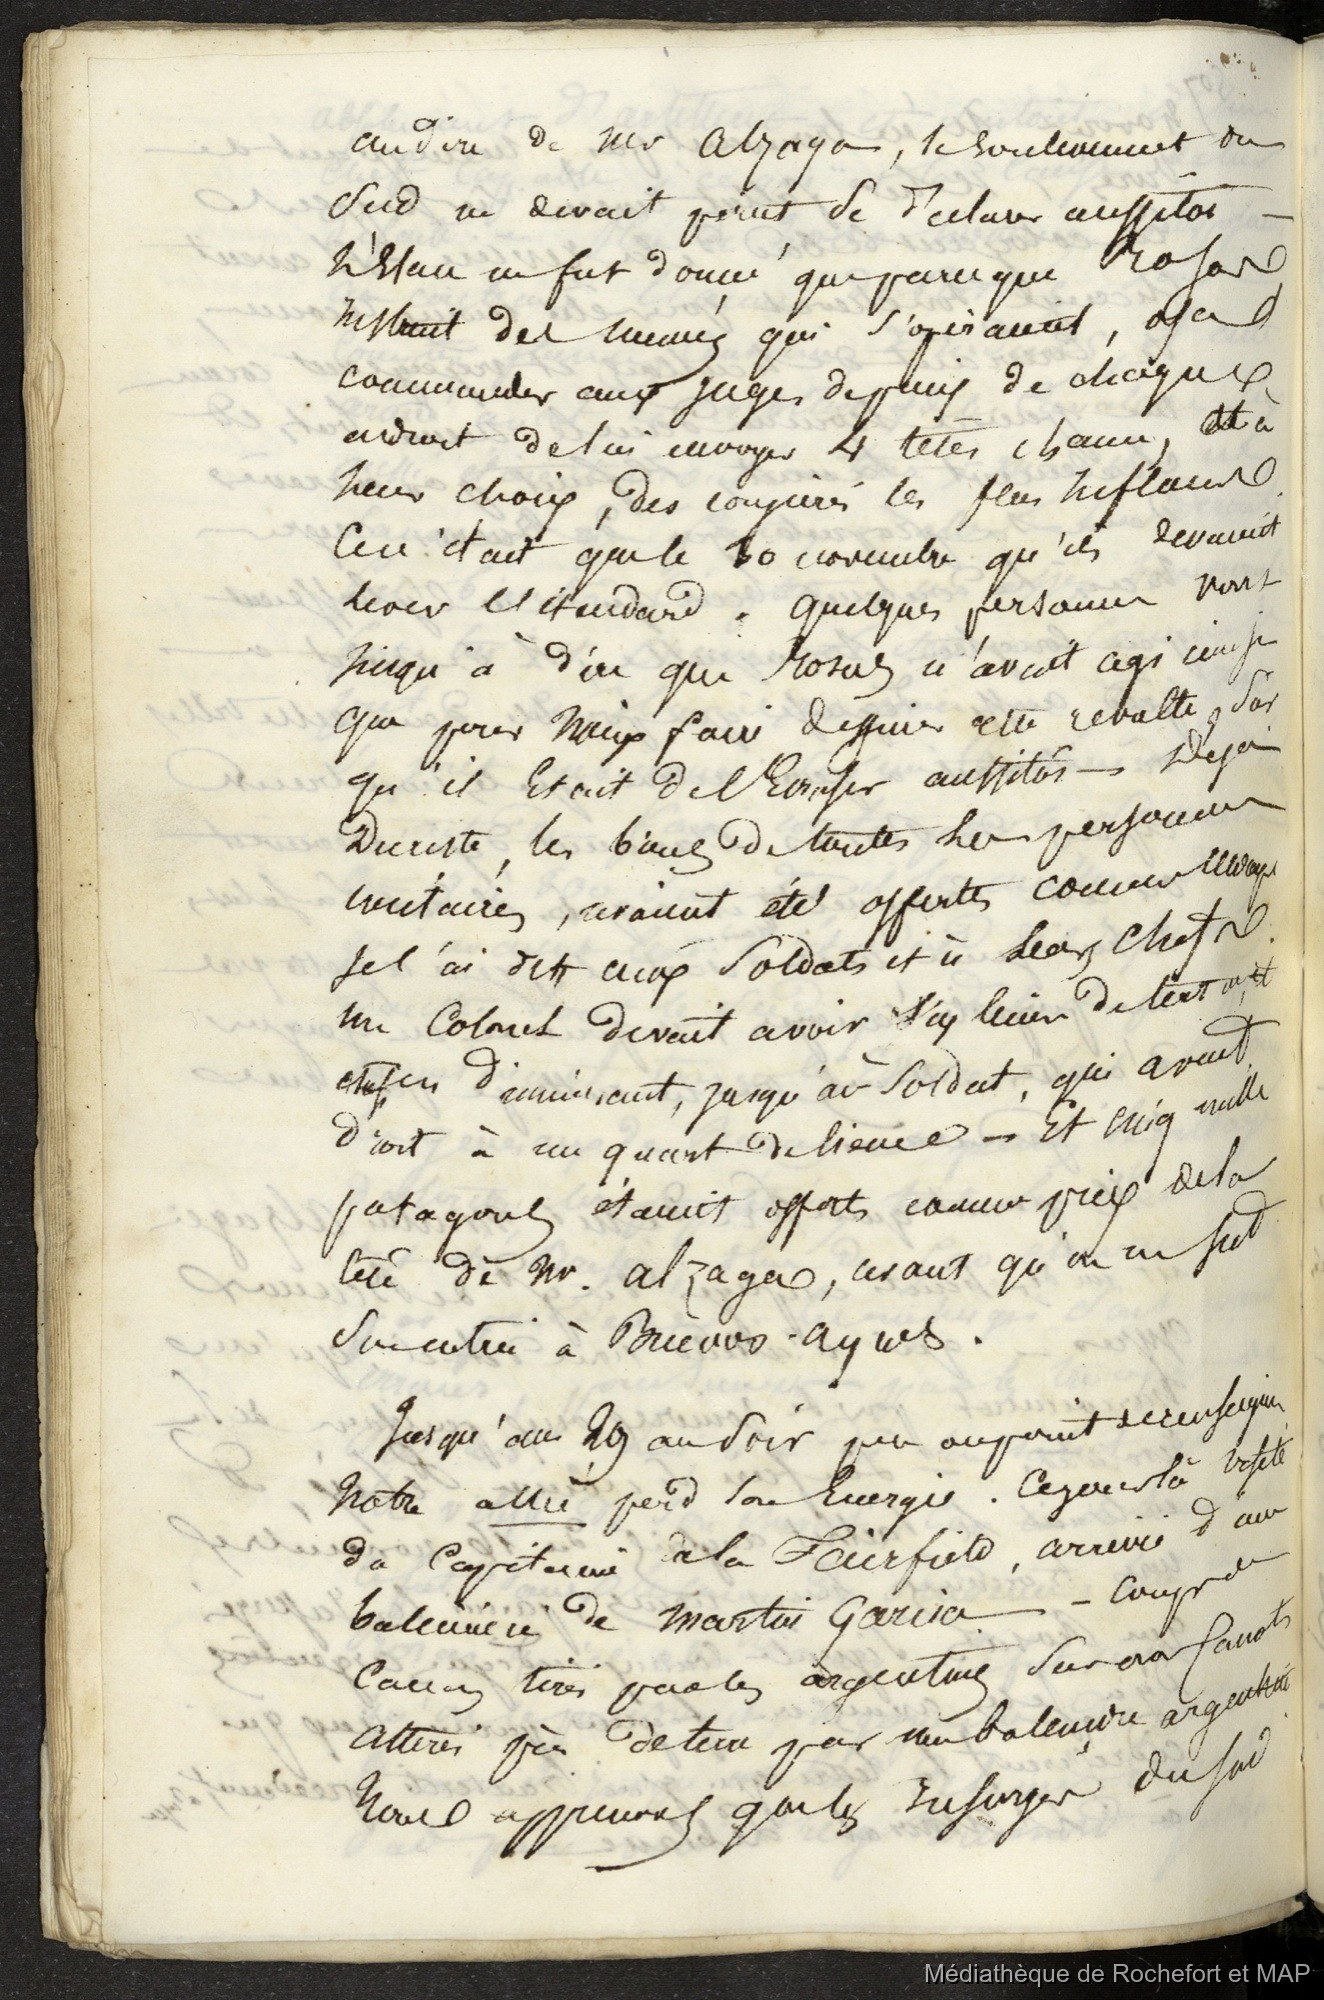 au dire de Mr Alzaga, le soulèvement du
Sud ne devait point se déclarer aussitôt —
L'élan ne fut donné que parceque Rosas
instruit des menées qui s'opéraient, osa
commander aux juges de paix de chaque
endroit de lui envoyer 4 têtes chacun, et à
leur choix, des conjurés les plus influens.
Ce n'était que le 10 novembre qu'ils devaient
lever l'étendard. Quelques personnes vont
jusqu'à dire que Rosas n'avait agi ainsi
que pour mieux faire dessiner cette révolte, sûr
qu'il était de l'écraser aussitôt — Déjà
Du reste, les biens de toutes les personnes
unitaires, avaient été offerts comme
je l'ai dit aux soldats et à leurs chefs.
un Colonel devait avoir six lieues de terrain, et
en diminuant, jusqu'au soldat, qui avait
droit à un quart de lieue — Et cinq mille
patagons étaient offerts comme prix de la
tête de Mr. Alzaga, avant qu'on ne sut
son entrée à Buenos-Ayres.
Jusqu'au 29 au soir peu ou point de renseignemens
Notre allié perd son énergie. Ce jour là visite
du Capitaine de la Fairfield, arrivé d'une
baleinière de Martin Garcia — — coups de
Canon tirés par les argentins sur nos canots
attérés près de terre par une baleinière argentine
Nous apprenons que les insurgés du sud